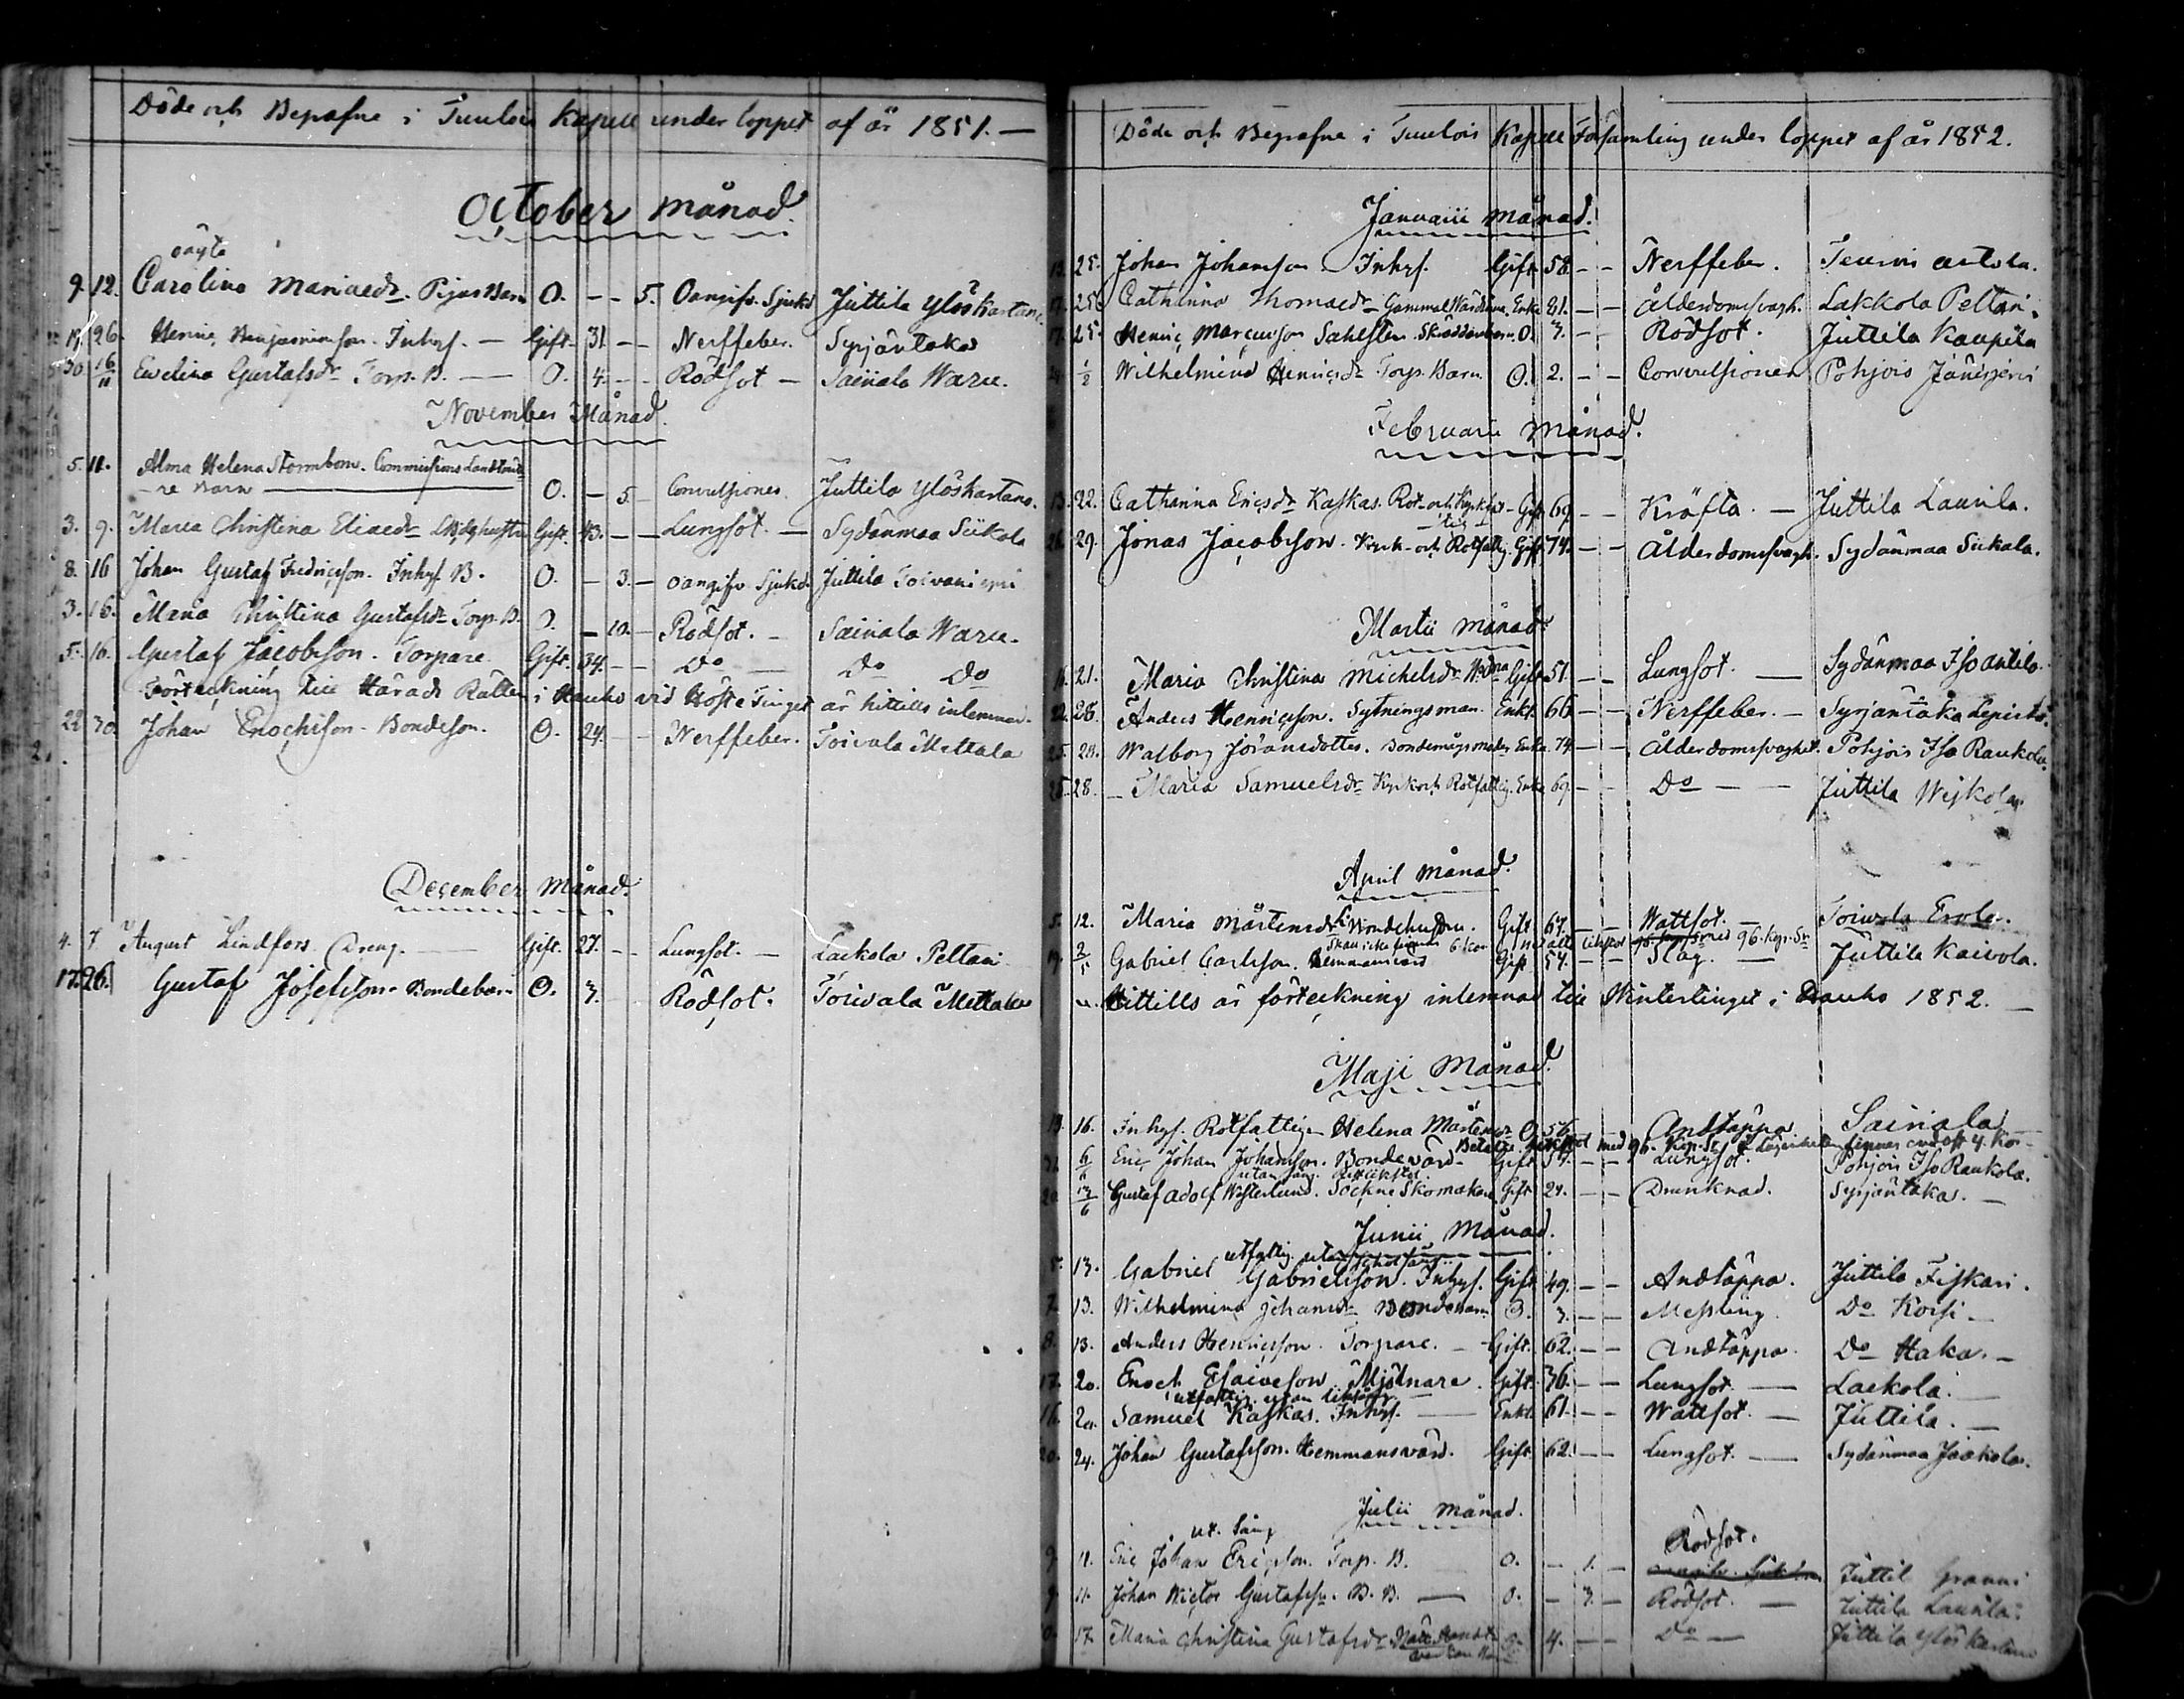 Döde och Begrafne i Tuulois Kapell under loppet af år 1851. —
October månad.
oägta
9. 12. Carolina Mariaedr. Pigas Barn O. — — 5. Oangifv. Sjukd. Juttila Ylöskartano.
19. 26. Henric Benjaminsson. Inhys. — Gift. 31. — — Nerffeber. Syrjäntaka
30. 16/11 Ewelina Gustafsdr Torp. B. — O. 4. — — Rödsot — Sairiala Waru.
November Månad.
5. 11. Alma Helena Stormbom. Commissions Landtmäta-
re Barn — O. — 5. — Convulsioner. Juttila Ylöskartano.
3. 9. Maria Christina Eliaedr Gift. 43. — — Lungsot. — Sydänmaa Siikala
8. 16 Johan Gustaf Fredricsson. Inhys. B. O. — 3. — oangifv Sjukd. Juttila Toivaniemi
3. 16. Maria Christina Gustafsdr Torp. B. O. — 10. — Rödsot. — Sairiala Waru.
5. 16. Gustaf Jacobsson. Torpare. Gift. 34. — — Do — Do Do
Förteckning till Härads Rätten i Hauho vid Höste Tinget är hittills inlemnad.
22 30. Johan Enochsson. Bondeson. O. 24. — — Nerffeber. Toivala Mettala
December Månad.
4. 7. August Lindfors. Dreng. — Gift. 27. — — Lungsot. — Laekola Peltari
17. 26. Gustaf Josefsson. Bondebarn O. 3. — Rödsot. Toivala Mettala
Döde och Begrafne i Tuulois Kapell Församling under loppet af år 1852.
Januarii månad.
25. Johan Johansson Inhys. Gift 58. — — Nerffeber. antola.
17. 25. Catharina Thomaedr Gammal Värdinna. Enka 81. — — Ålderdomssvagh. Lakkola Peltari.
17. 25. Henric Marcusson Sahlsten. Skräddarbarn. O. 3. — — Rödsot. Juttila Kaupila
24. 1/2 Wilhelmina Henricsdr Torp. Barn. O. 2. — — Convulsioner Pohjois Jänisjärvi
Februarii månad.
13. 22. Catharina Ericsdr Kaskas. Rot- och Kyrkfat-
tig — Gift 69. — — Kräfta. — Juttila Laurila.
26. 29. Jonas Jacobsson. Kyrk- och Rotfattig. Gift 74. — — Ålderdomssvagh. Sydänmaa Siikala.
Martii månad.
16. 21. Maria Christina Michelsdr Gift 51. — — Lungsot. — Sydänmaa Iso antila.
22. 28. Anders Henricsson. Sytningsman. Enkl. 66. — — Nerffeber. — Syrjäntaka Lepistö.
25. 28. Walborg Jöransdotter. Enka. 74. — — Ålderdomssvaghet. Pohjois Iso Raukola.
25. 28. Maria Samuelsdr Kyrk och Rotfattig. Enka 69. — — Do — — Juttila Wejkola
April månad.
5. 12. Maria Mårtensdr Gift 67. — — Wattsot. — Toivola Erola.
19. 2/5 Gabriel Carlsson. Hemmansvärd Gift 54. — — Slag. — Juttila Kaivola.
Hittills är förteckning inlemnad till Wintertinget i Hauho 1852. —
Maji Månad.
19. 16. Inhys. Rotfattig Helena Mårtensdr O. 56. — — Andtäppa Sairiala
6/6 Eric Johan Johansson. Bondevärd. Gift 54. — — Lungsot. Pohjois Iso Raukola.
20. 13/6 Gustaf Adolf Westerlund. Sockne Skomakare Gift 24. — — Drunknad. Syrjäntaka. —
Junii Månad.
utfattig utan
5. 13. Gabriel Gabrielsson. Inhys. Gift 49. — — Andtäppa. Juttila Fiskari.
7. 13. Wilhelmina Johansdr Bondebarn O. 3. — — Messling. Do Korpi —
8. 13. Anders Henricsson. Torpare. — Gift. 62. — — Andtäppa. Do Haka. —
17. 20. Enoch Esaiæsson. Mjölnare. Gift. 36. — — Lungsot. — Laekola. —
utfattig utan liksång.
16. 20. Samuel Kaskas. Inhys. — Enkl. 61. — — Wattsot. — Juttila. —
20. 24. Johan Gustafsson. Hemmansvärd. Gift. 62. — — Lungsot. — Sydänmaa Jaakola.
Julii månad.
ut. Sång Rödsot.
9. 11. Eric Johan Ericsson. Torp. B. O. — 1. — Juttil Granni
9. 11. Johan Wictor Gustafss. B. B. — O. — 3. — Rödsot. — Juttila Laurila.
17. Maria Christina Gustafsdr O. 4. — — Do — Juttila Ylöskartano